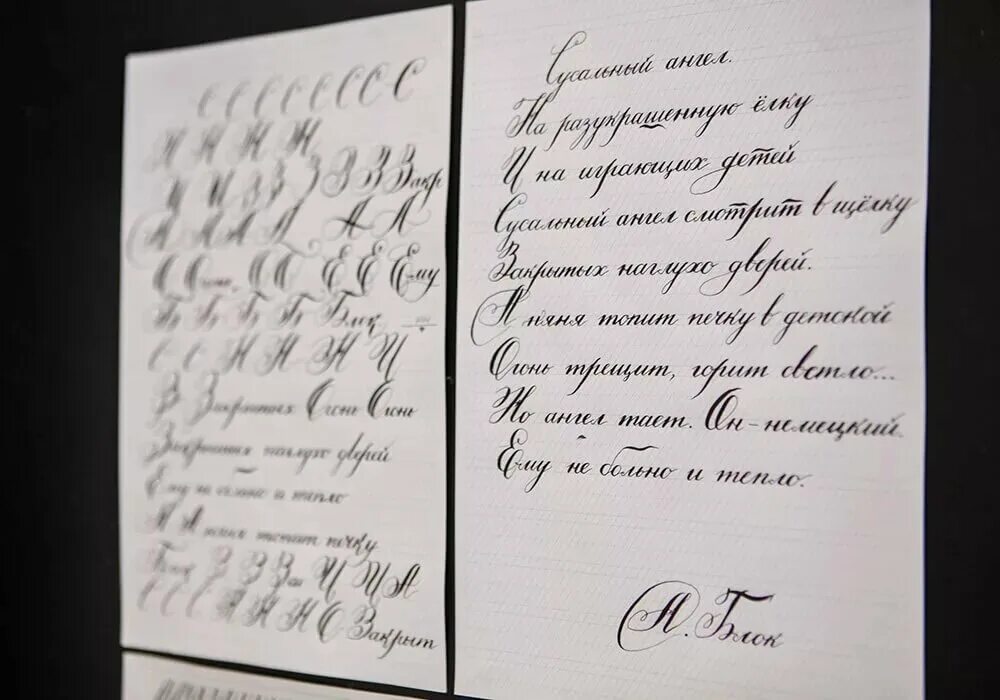 С С С С С С С С
Н Н Н Н
И И З З З З З З Закр
А А А А А А
О Огонь О О Е Е Ему
Б Б Б Б Блок
С С Н Н Н И
З Закрытых Огонь Огонь
Закрытых наглухо дверей
Ему не больно и тепло
А А няня топит печку
Блок З З За И И А
С С С Н Н Н О Закрыт
Сусальный ангел.
На разукрашенную ёлку
И на играющих детей
Сусальный ангел смотрит в щёлку
Закрытых наглухо дверей.
А няня топит печку в детской
Огонь трещит, горит светло...
Но ангел тает. Он - немецкий.
Ему не больно и тепло.
А. Блок